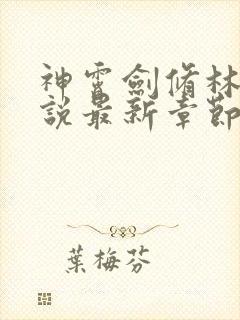 神霄劍脩林
說最新章節
葉梅芬